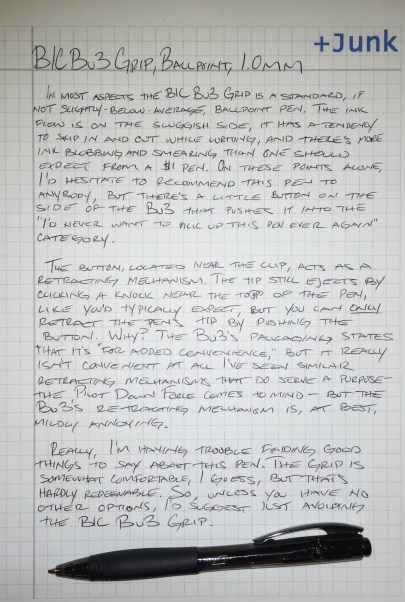 +Junk
BIC BU3 GRIP, BALLPOINT, 1.0MM
IN MOST ASPECTS THE BIC BU3 GRIP IS A STANDARD, IF
NOT SLIGHTLY-BELOW-AVERAGE, BALLPOINT PEN. THE INK
FLOW IS ON THE SLUGGISH SIDE, IT HAS A TENDENCY
TO SKIP IN AND OUT WHILE WRITING, AND THERE'S MORE
INK BLOBBING AND SMEARING THAN ONE SHOULD
EXPECT FROM A $1 PEN. ON THESE POINTS ALONE,
I'D HESITATE TO RECOMMEND THIS PEN TO
ANYBODY, BUT THERE'S A LITTLE BUTTON ON THE
SIDE OF THE BU3 THAT PUSHES IT INTO THE
"I'D NEVER WANT TO PICK UP THIS PEN EVER AGAIN"
CATEGORY.
THE BUTTON, LOCATED NEAR THE CLIP, ACTS AS A
RETRACTING MECHANISM. THE TIP STILL EJECTS BY
CLICKING A KNOCK NEAR THE TOP OF THE PEN,
LIKE YOU'D TYPICALLY EXPECT, BUT YOU CAN ONLY
RETRACT THE PEN'S TIP BY PUSHING THE
BUTTON. WHY? THE BU3'S PACKAGING STATES
THAT IT'S "FOR ADDED CONVENIENCE," BUT IT REALLY
ISN'T CONVENIENT AT ALL. I'VE SEEN SIMILAR
RETRACTING MECHANISMS THAT DO SERVE A PURPOSE-
THE PILOT DOWN FORCE COMES TO MIND - BUT THE
BU3'S RETRACTING MECHANISM IS, AT BEST,
MILDLY ANNOYING.
REALLY, I'M HAVING TROUBLE FINDING GOOD
THINGS TO SAY ABOUT THIS PEN. THE GRIP IS
SOMEWHAT COMFORTABLE, I GUESS, BUT THAT'S
HARDLY REDEEMABLE. SO, UNLESS YOU HAVE NO
OTHER OPTIONS, I'D SUGGEST JUST AVOIDING
THE BIC BU3 GRIP.